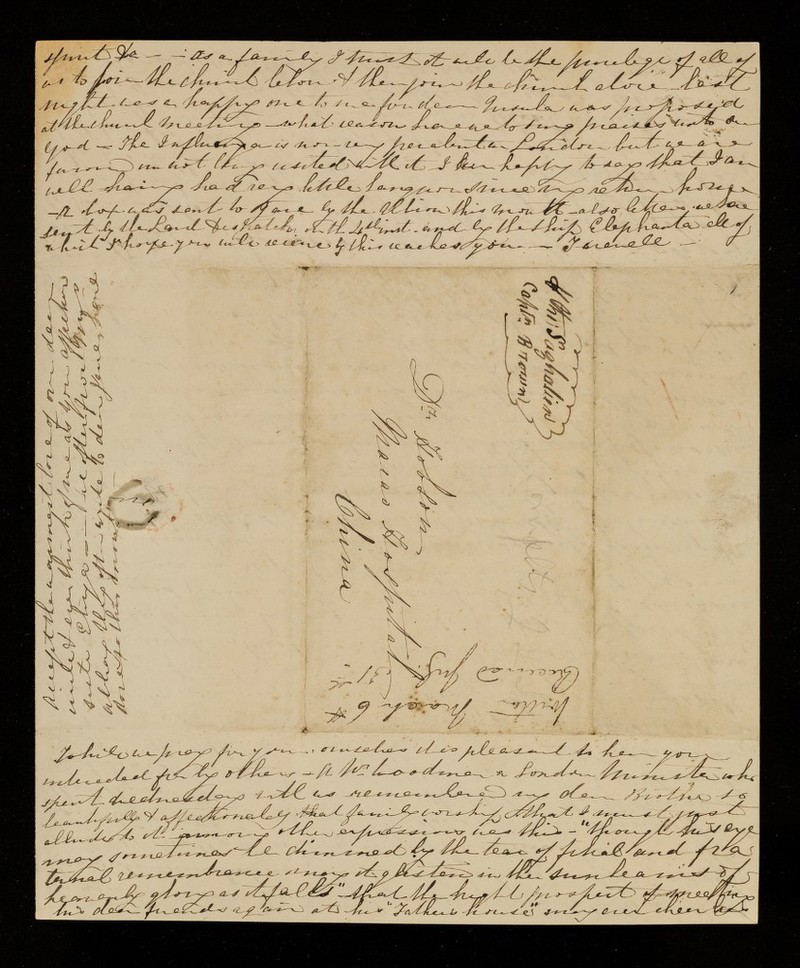 spirit &c — as a family I trust it will be the privilege of all of
us to join the church below & then join the church above — last
night was a happy one to me for dear Ursula was proposed
at the church meeting — what reason have we to sing praises unto our
God — The Influenza is now very prevalent in London but we are
favoured in not being visited with it I am happy to say that I am
well having had very little languor since my return home
— A box was sent to you by the Union this month — also letters were
sent by the Land Despatch on the 4th inst. and by the ship Elephanta all of
which I hope you will receive ere this reaches you — Farewell —
Accept the warmest love of our dear
and ever think of me as your affectionate
sister Eliza
write to dear
this
pr the Saghalien
Captn Brown
Dr. Hobson
Macao Hospital
China
Written March 6th
Received July 31st
While we pray for you ourselves it is pleasant to hear you
interceded for by others — A Mr. Woodman a London Minister who
spent Wednesday with us remembered my dear Brother so
beautifully & affectionately at family worship that I must just
allude to it — among other expressions was this — "though his eye
may sometimes be dimmed by the tear of filial and fra
ternal remembrance may it glisten in the sunbeams of
heavenly glory as it falls" — that the bright prospect of meeting
his dear friends again at his "Father's house" may ever cheer